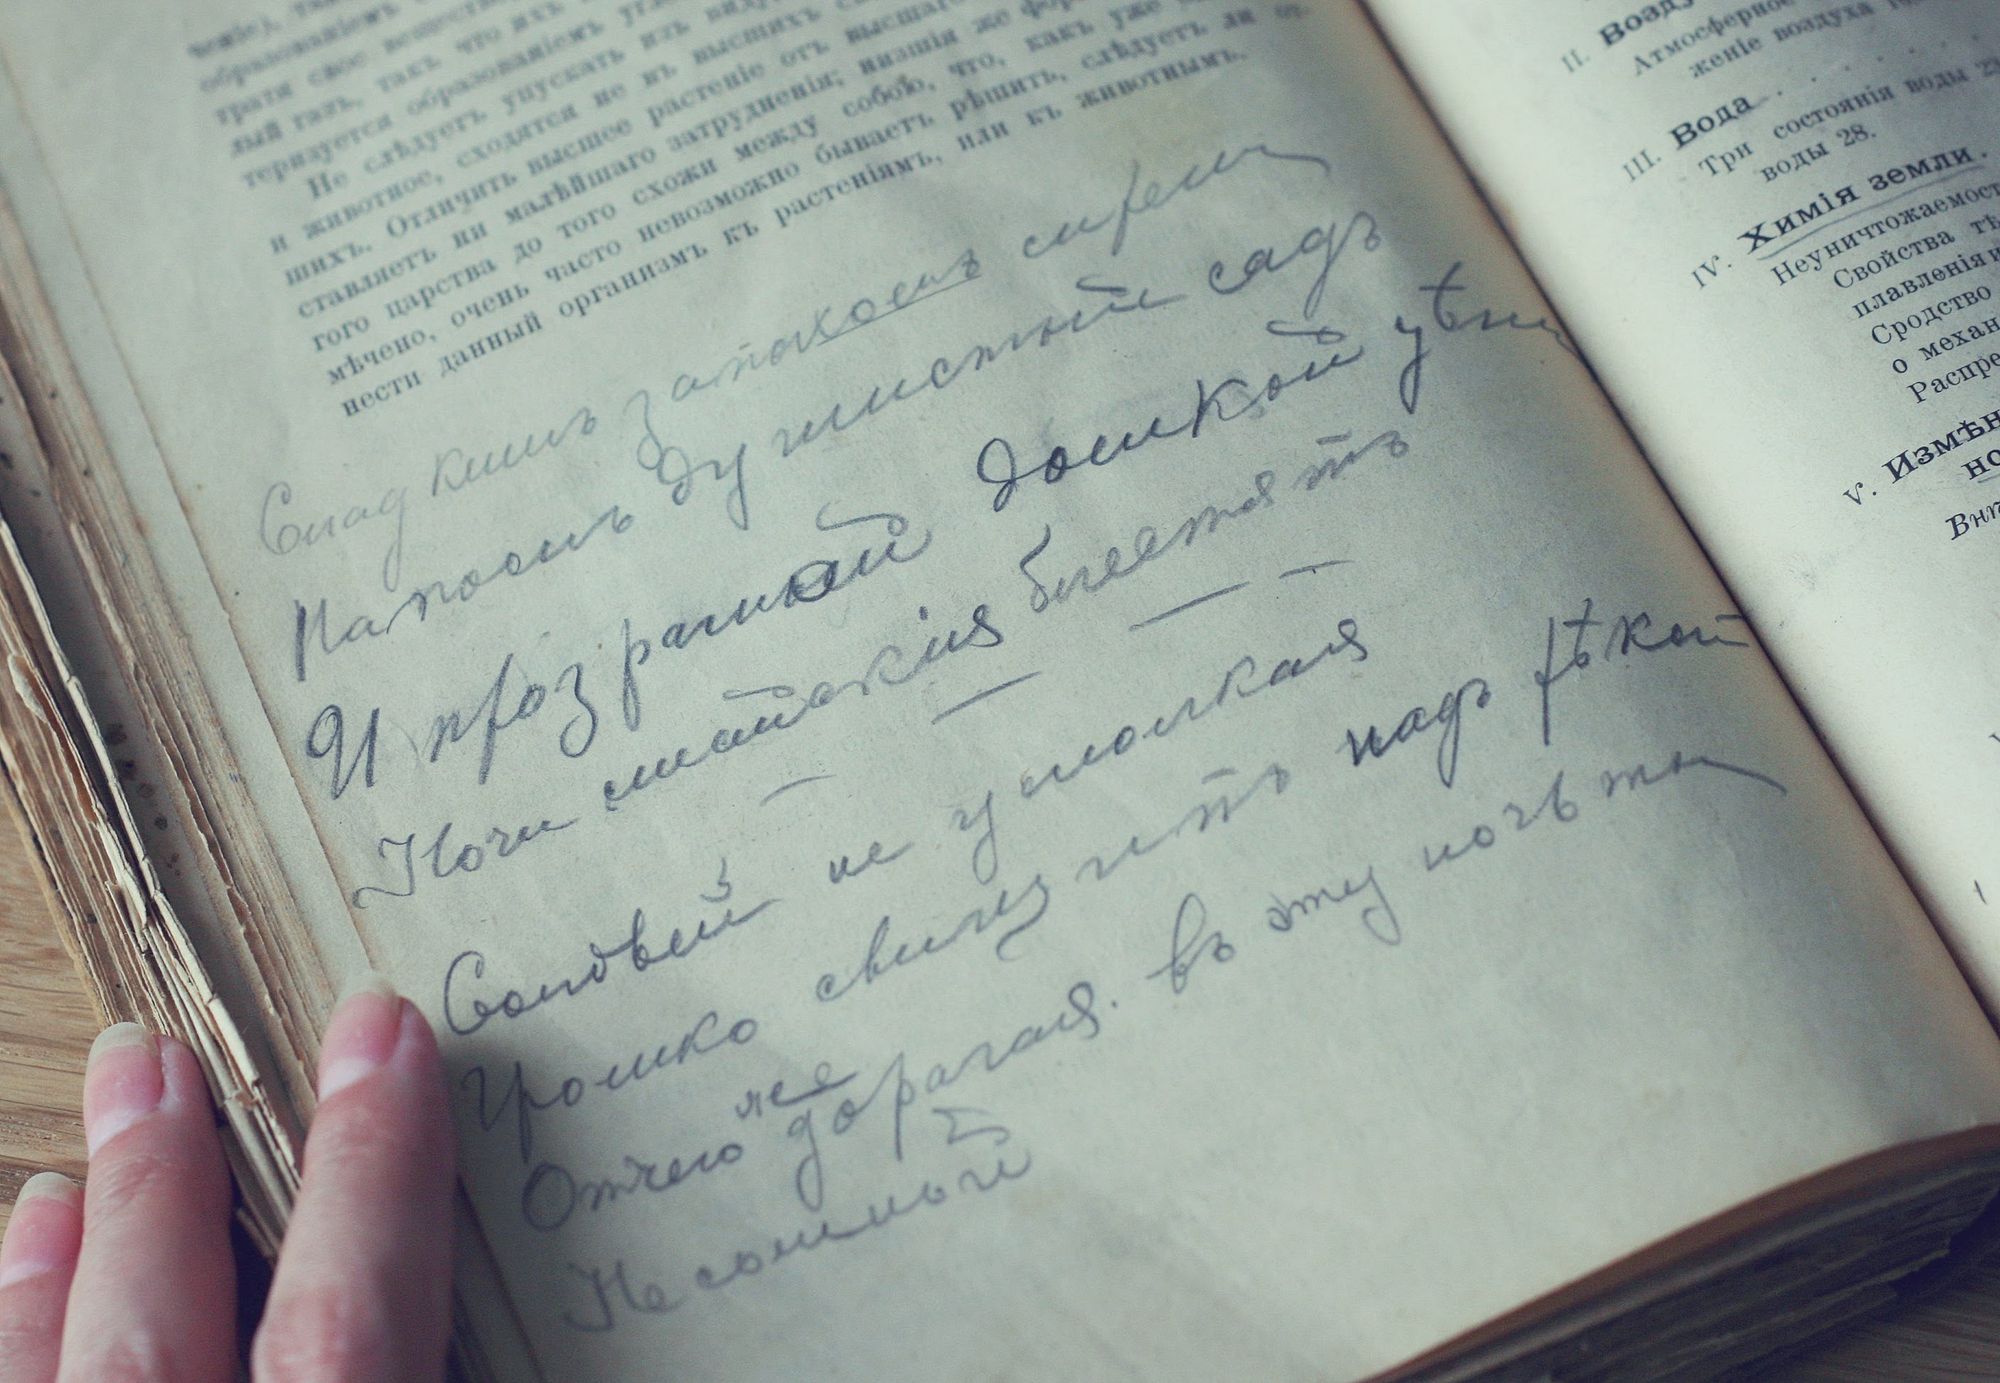 образованіемъ
тратя свое вещество
лый газъ, такъ, что ихъ
теризуется образованіемъ
Не слѣдуетъ упускать изъ виду,
и животное, сходятся не въ высшихъ
шихъ. Отличить высшее растеніе отъ высшаго
ставляетъ ни малѣйшаго затрудненія; низшія же
того царства до того схожи между собою, что, какъ уже
мѣчено, очень часто невозможно бываетъ рѣшить, слѣдуетъ ли от-
нести данный организмъ къ растеніямъ, или къ животнымъ.
Сладкимъ запахомъ сирени
Напоенъ душистый садъ
И прозрачной дымкой тѣни
Ночи майскія блестятъ
— — — —
Соловей не умолкая
Громко свищутъ надъ рѣкой
Отчего же дорагая. въ эту ночь ты
Не сомной
II.
Атмосферное
женіе воздуха
III. Вода
Три состоянія воды
воды 28.
IV. Химія земли.
Неуничтожаемост
Свойства
плавленія и
Сродство
о механ
Распре
V. Измѣн
но